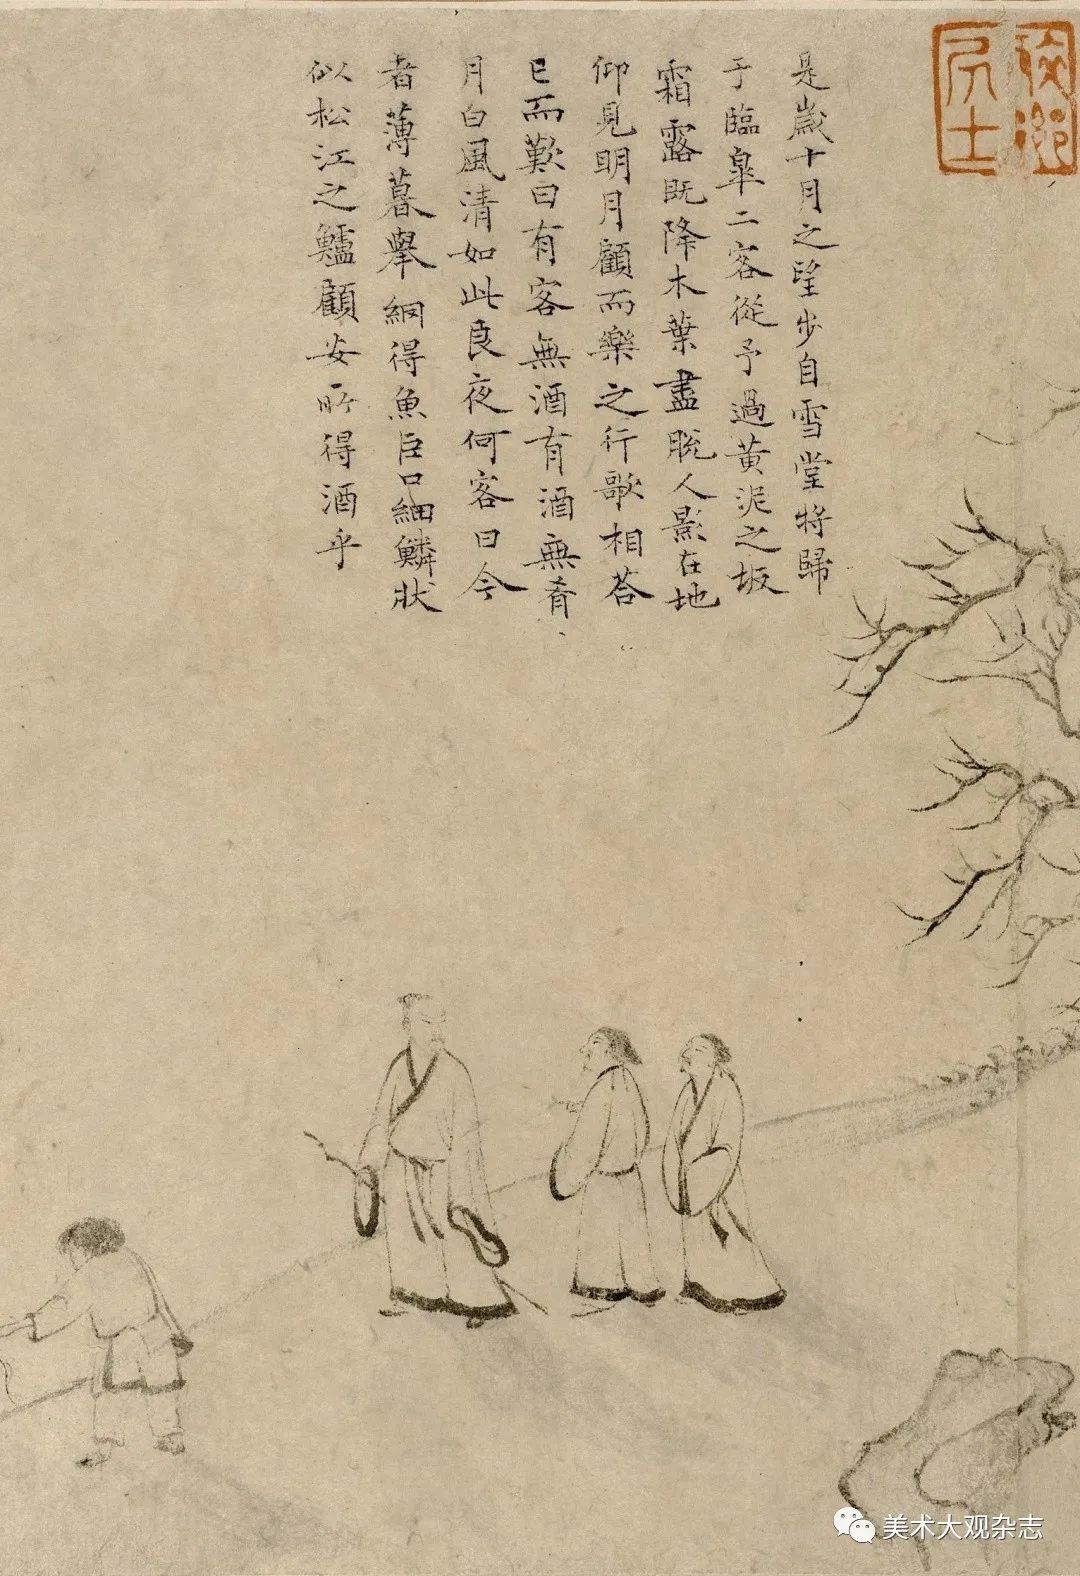 是歲十月之望步自雪堂將歸
于臨皐二客從予過黃泥之坂
霜露既降木葉盡脫人影在地
仰見明月顧而樂之行歌相荅
已而歎曰有客無酒有酒無肴
月白風清如此良夜何客曰今
者薄暮舉網得魚巨口細鱗狀
似松江之鱸顧安所得酒乎
美术大观杂志